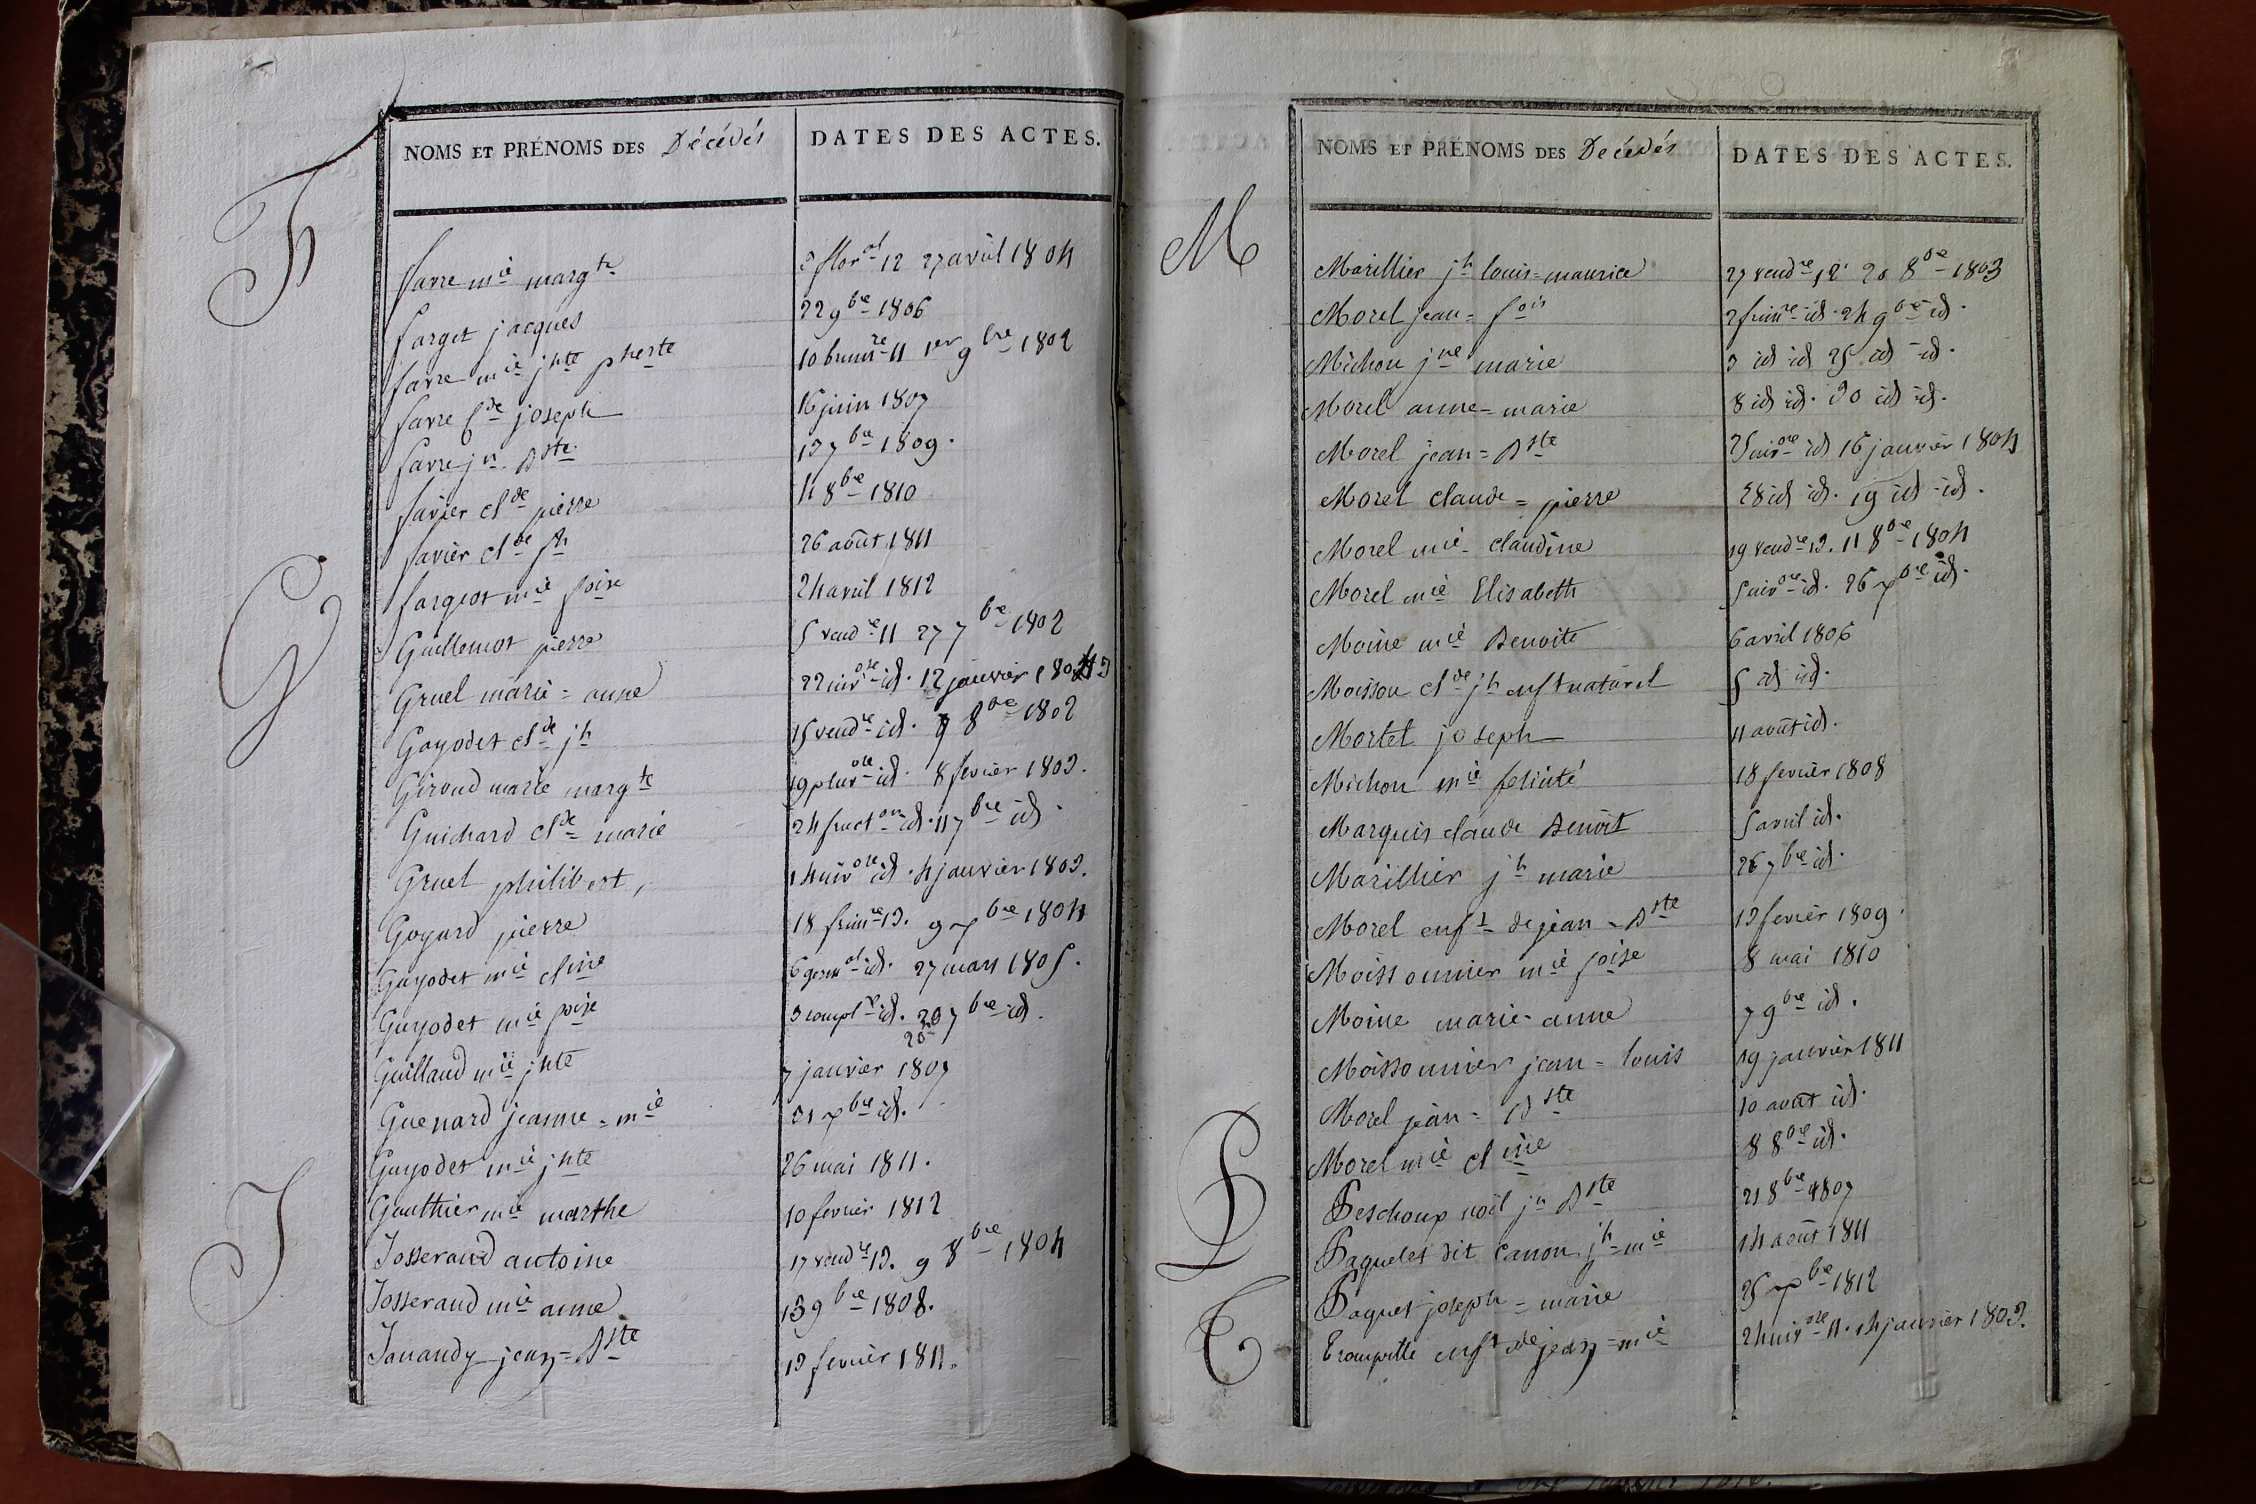 NOMS ET PRÉNOMS DES Décédés
DATES DES ACTES.
F
favre mie margte 2 floral 12 27 avril 1804
farget jacques 22 9bre 1806
favre mie jhte 10 brumre 11 1er 9bre 1802
favre Cde joseph 16 juin 1807
favre jn Bste 13 7bre 1809.
favier Clde pierre 4 8bre 1810
favier Clde fs 26 août 1811
fargeot mie foise 24 avril 1812
G
Guillemot pierre 5 vendre 11 27 7bre 1802
Gruel marie = anne 22 nivose id. 12 janvier 1803
Goyodet Clde jh 15 vendre id. 9 8bre 1802
Giroud marie margte 19 pluvose id. 8 fevrier 1803.
Guichard Clde marie 24 fructor id. 11 7bre id.
Gruel philibert, 14 nivose id. 4 janvier 1803.
Goyard pierre 18 frimre 13. 9 xbre 1804
Guyodet mie Cline 6 germal id. 27 mars 1805.
Guyodet mie foise 3 compl id. 20 7bre id.
20
Guillaud mie jhte 7 janvier 1807
Guenard jeanne = mie 31 xbre id.
Guyodet mie jhte 26 mai 1811.
Gauthier mie marthe 10 fevrier 1812
J
Josserand antoine 17 vendre 13. 9 8bre 1804
Josserand mie anne 13 9bre 1808.
Janandy jean = Bste 13 fevrier 1811.
NOMS ET PRÉNOMS DES Decédés
DATES DES ACTES.
M
Marillier jh louis = maurice 27 vendre 12 20 8bre 1803
Morel jean = fois 2 frimre id. 24 9bre id.
Michon jne marie 3 id id 25 id id.
Morel anne = marie 8 id id. 30 id id.
Morel jean = Bste 25 nivose id 16 janvier 1804
Morel Claude = pierre 28 id id. 19 id id.
Morel mie Claudine 19 vendre 13. 11 8bre 1804
Morel mie Elisabeth 5 nivose id. 26 xbre id.
Moine mie Benoite 6 avril 1806
Moisson Clde jh enft naturel 5 id id.
Mortet joseph 11 août id.
Michon mie felicité 18 fevrier 1808
Marquis claude Benoit 5 avril id.
Marillier jh marie 26 7bre id.
Morel enft de jean = Bste 13 fevrier 1809.
Moissonnier mie foise 8 mai 1810
Moine marie anne 7 9bre id.
Moissonnier jean = louis 19 janvier 1811
Morel jean = Bste 10 août id.
Morel mie Cline 8 8bre id.
P
Peschoux noël jn Bste 21 8bre 1807
Paquelet dit Canon jh = mie 14 août 1811
Paquet joseph = marie 25 xbre 1812
T
Trompille enft de jean = mie 24 nivose 11. 14 janvier 1803.